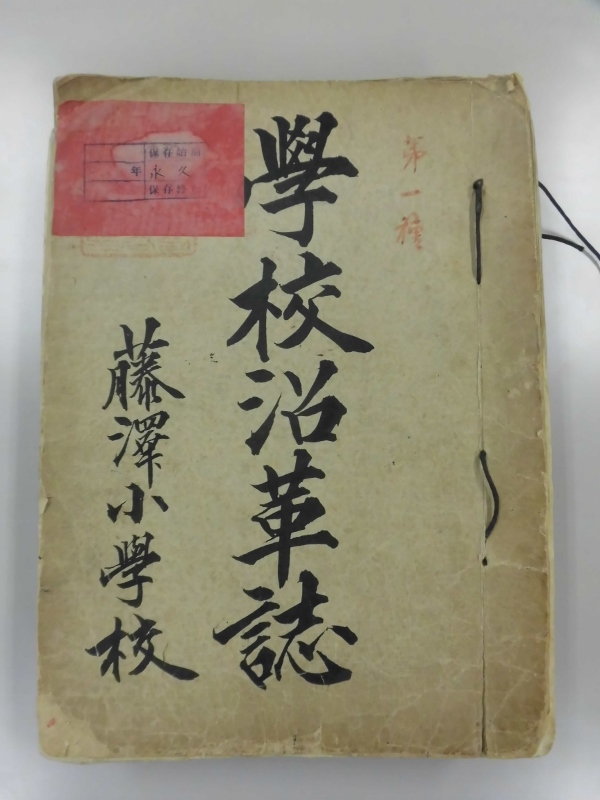 第一種
學校沿革誌
藤澤小學校
保存始期
年
永久
保存終